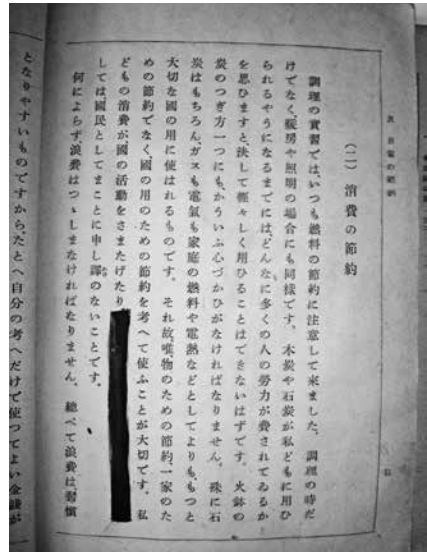 (二) 消費の節約
調理の實習では、いつも燃料の節約に注意して來ました。調理の時だ
けでなく、暖房や照明の場合にも同様です。木炭や石炭が私どもに用ひ
られるやうになるまでには、どんなに多くの人の勞力が費されてゐるか
を思ひますと、決して輕々しく用ひることはできないはずです。火鉢の
炭のつぎ方一つにも、かういふ心づかひがなければなりません。殊に石
炭はもちろん、ガスも電氣も家庭の燃料や電熱などとしてよりも、もつと
大切な國の用に使はれるものです。それ故、唯物のための節約、一家のた
めの節約でなく、國の用のための節約を考へて使ふことが大切です。私
どもの消費が、國の活動をさまたげたり
しては國民としてまことに申し譯のないことです。
何によらず浪費はつゝしまなければなりません。總べて浪費は習慣
となりやすいものですから、たとへ自分の考へだけで使つてよい金錢が